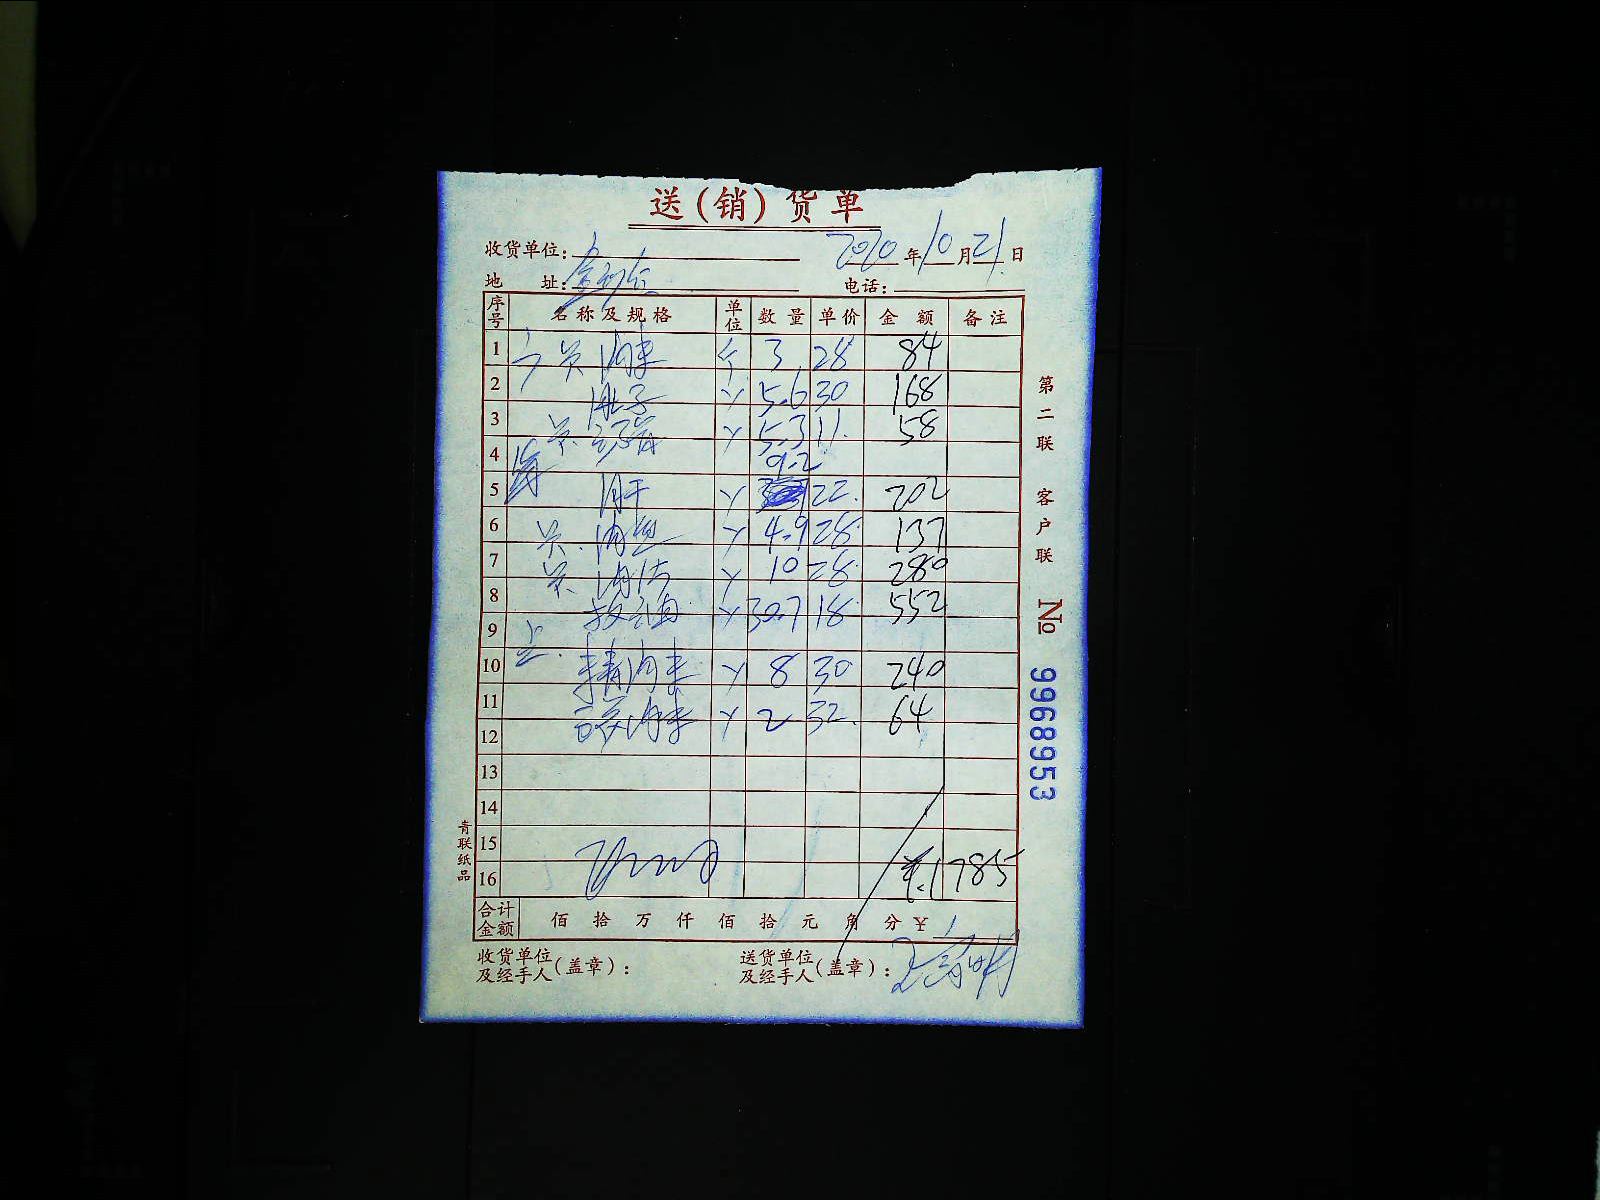 送(销)货单
收货单位: 2020年10月21日
地 址: 电话:
序号 名称及规格 单位 数量 单价 金额 备注
1 肉末 个 3 28 84
2 肚子 个 5.6 30 168
3 个 5.3 11. 58
4 9.2
5 肝 个 22. 202
6 肉丝 个 4.9 28. 137
7 肉片 个 10 28. 280
8 板油 个 30.7 18. 552
9
10 精肉末 个 8 30. 240
11 肉末 个 2 32. 64
12
13
14
15
16 ¥.1785
合计金额 佰 拾 万 仟 佰 拾 元 角 分 ¥
收货单位及经手人(盖章): 送货单位及经手人(盖章):
第二联 客户联 No 9968953
青联纸品